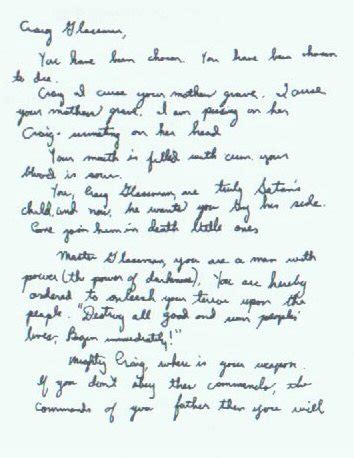 Craig Glassman,
You have been chosen. You have been chosen
to die.
Craig I curse your mother grave. I curse
your mothers grave. I am pissing on her
Craig- urinating on her head
Your mouth is filled with cum, your
blood is sour.
You, Craig Glassman, are truly Satan's
child, and now, he wants you by his side.
Come join him in death little ones
Master Glassman, you are a man with
power (the power of darkness). You are hereby
ordered to unleash your terror upon the
people. "Destroy all good and ruin peoples
lives. Begin immediately!"
Mighty Craig, where is your weapon.
If you don't obey these commands, the
commands of your father then youre will